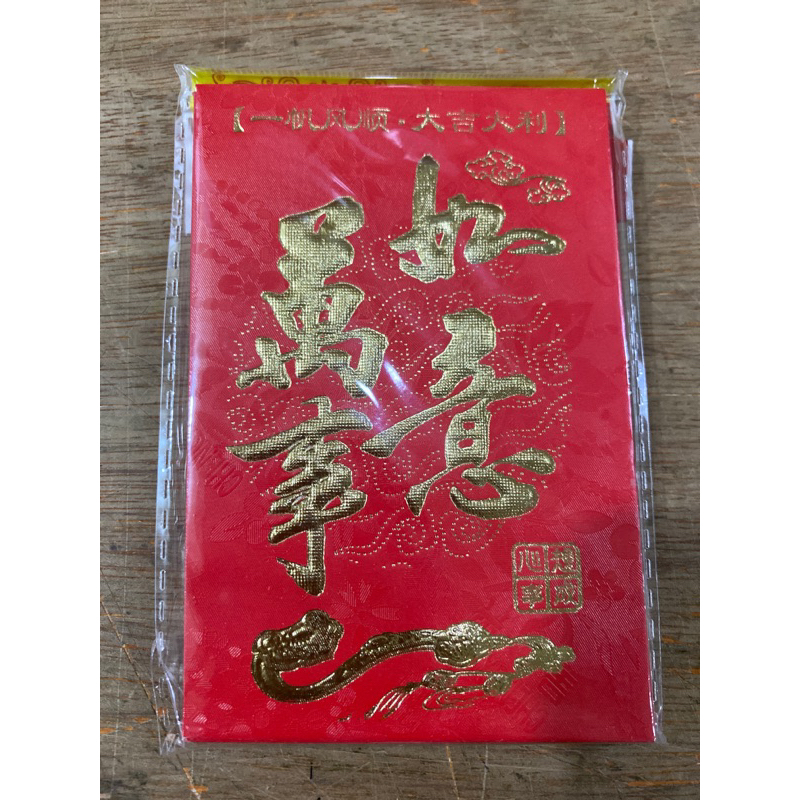 【一帆风顺·大吉大利】
萬事
如意